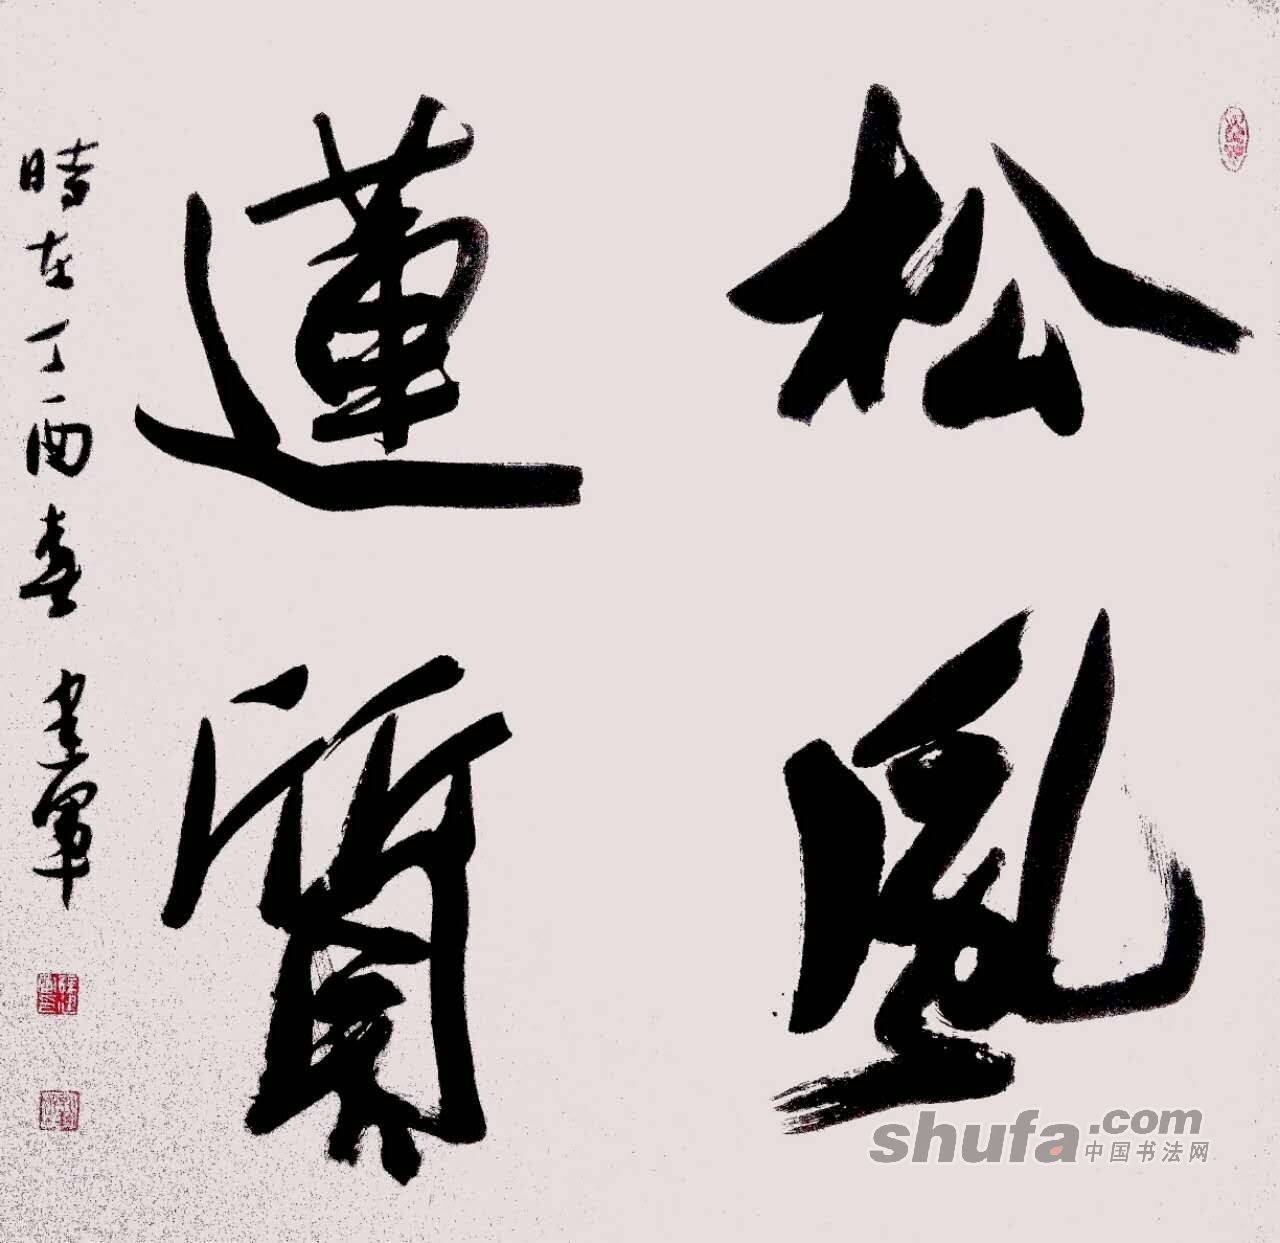 松風
蓮質
時在丁酉春 建軍
shufa.com
中国书法网